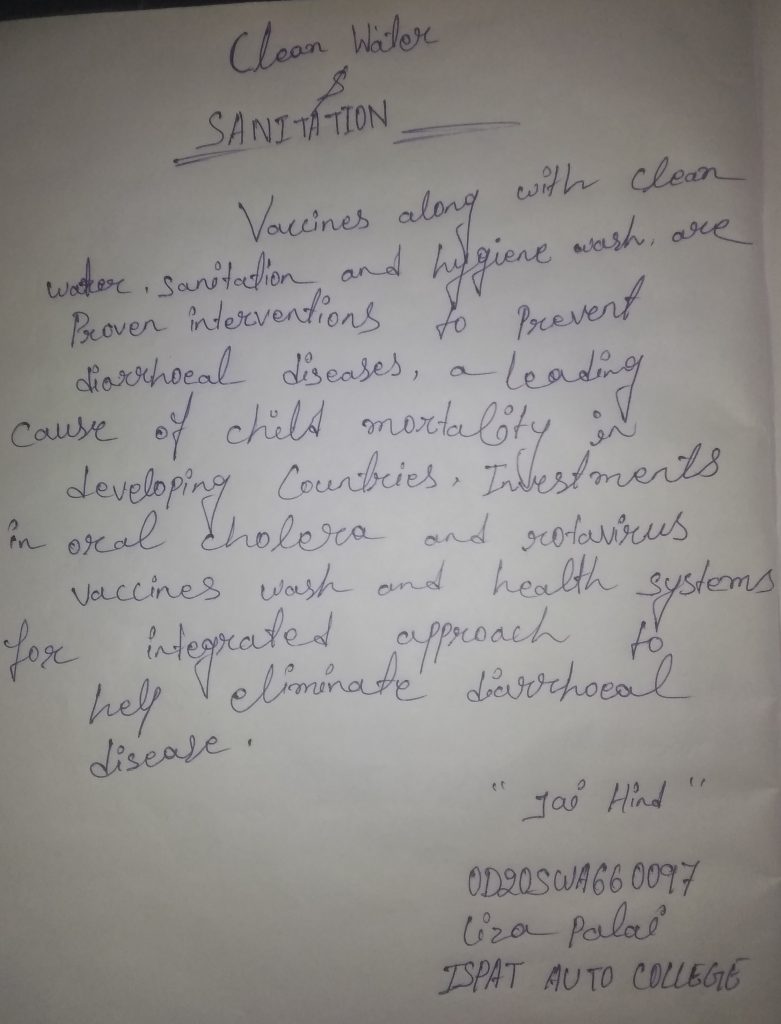 Clean Water
&
SANITATION
Vaccines along with clean
water, sanitation and hygiene wash, are
Proven interventions to Prevent
diarrhoeal diseases, a leading
cause of child mortality in
developing Countries. Investments
in oral cholera and rotavirus
vaccines wash and health systems
for integrated approach to
help eliminate diarrhoeal
disease.
" Jai Hind "
OD20SWA660097
Liza Palai
ISPAT AUTO COLLEGE